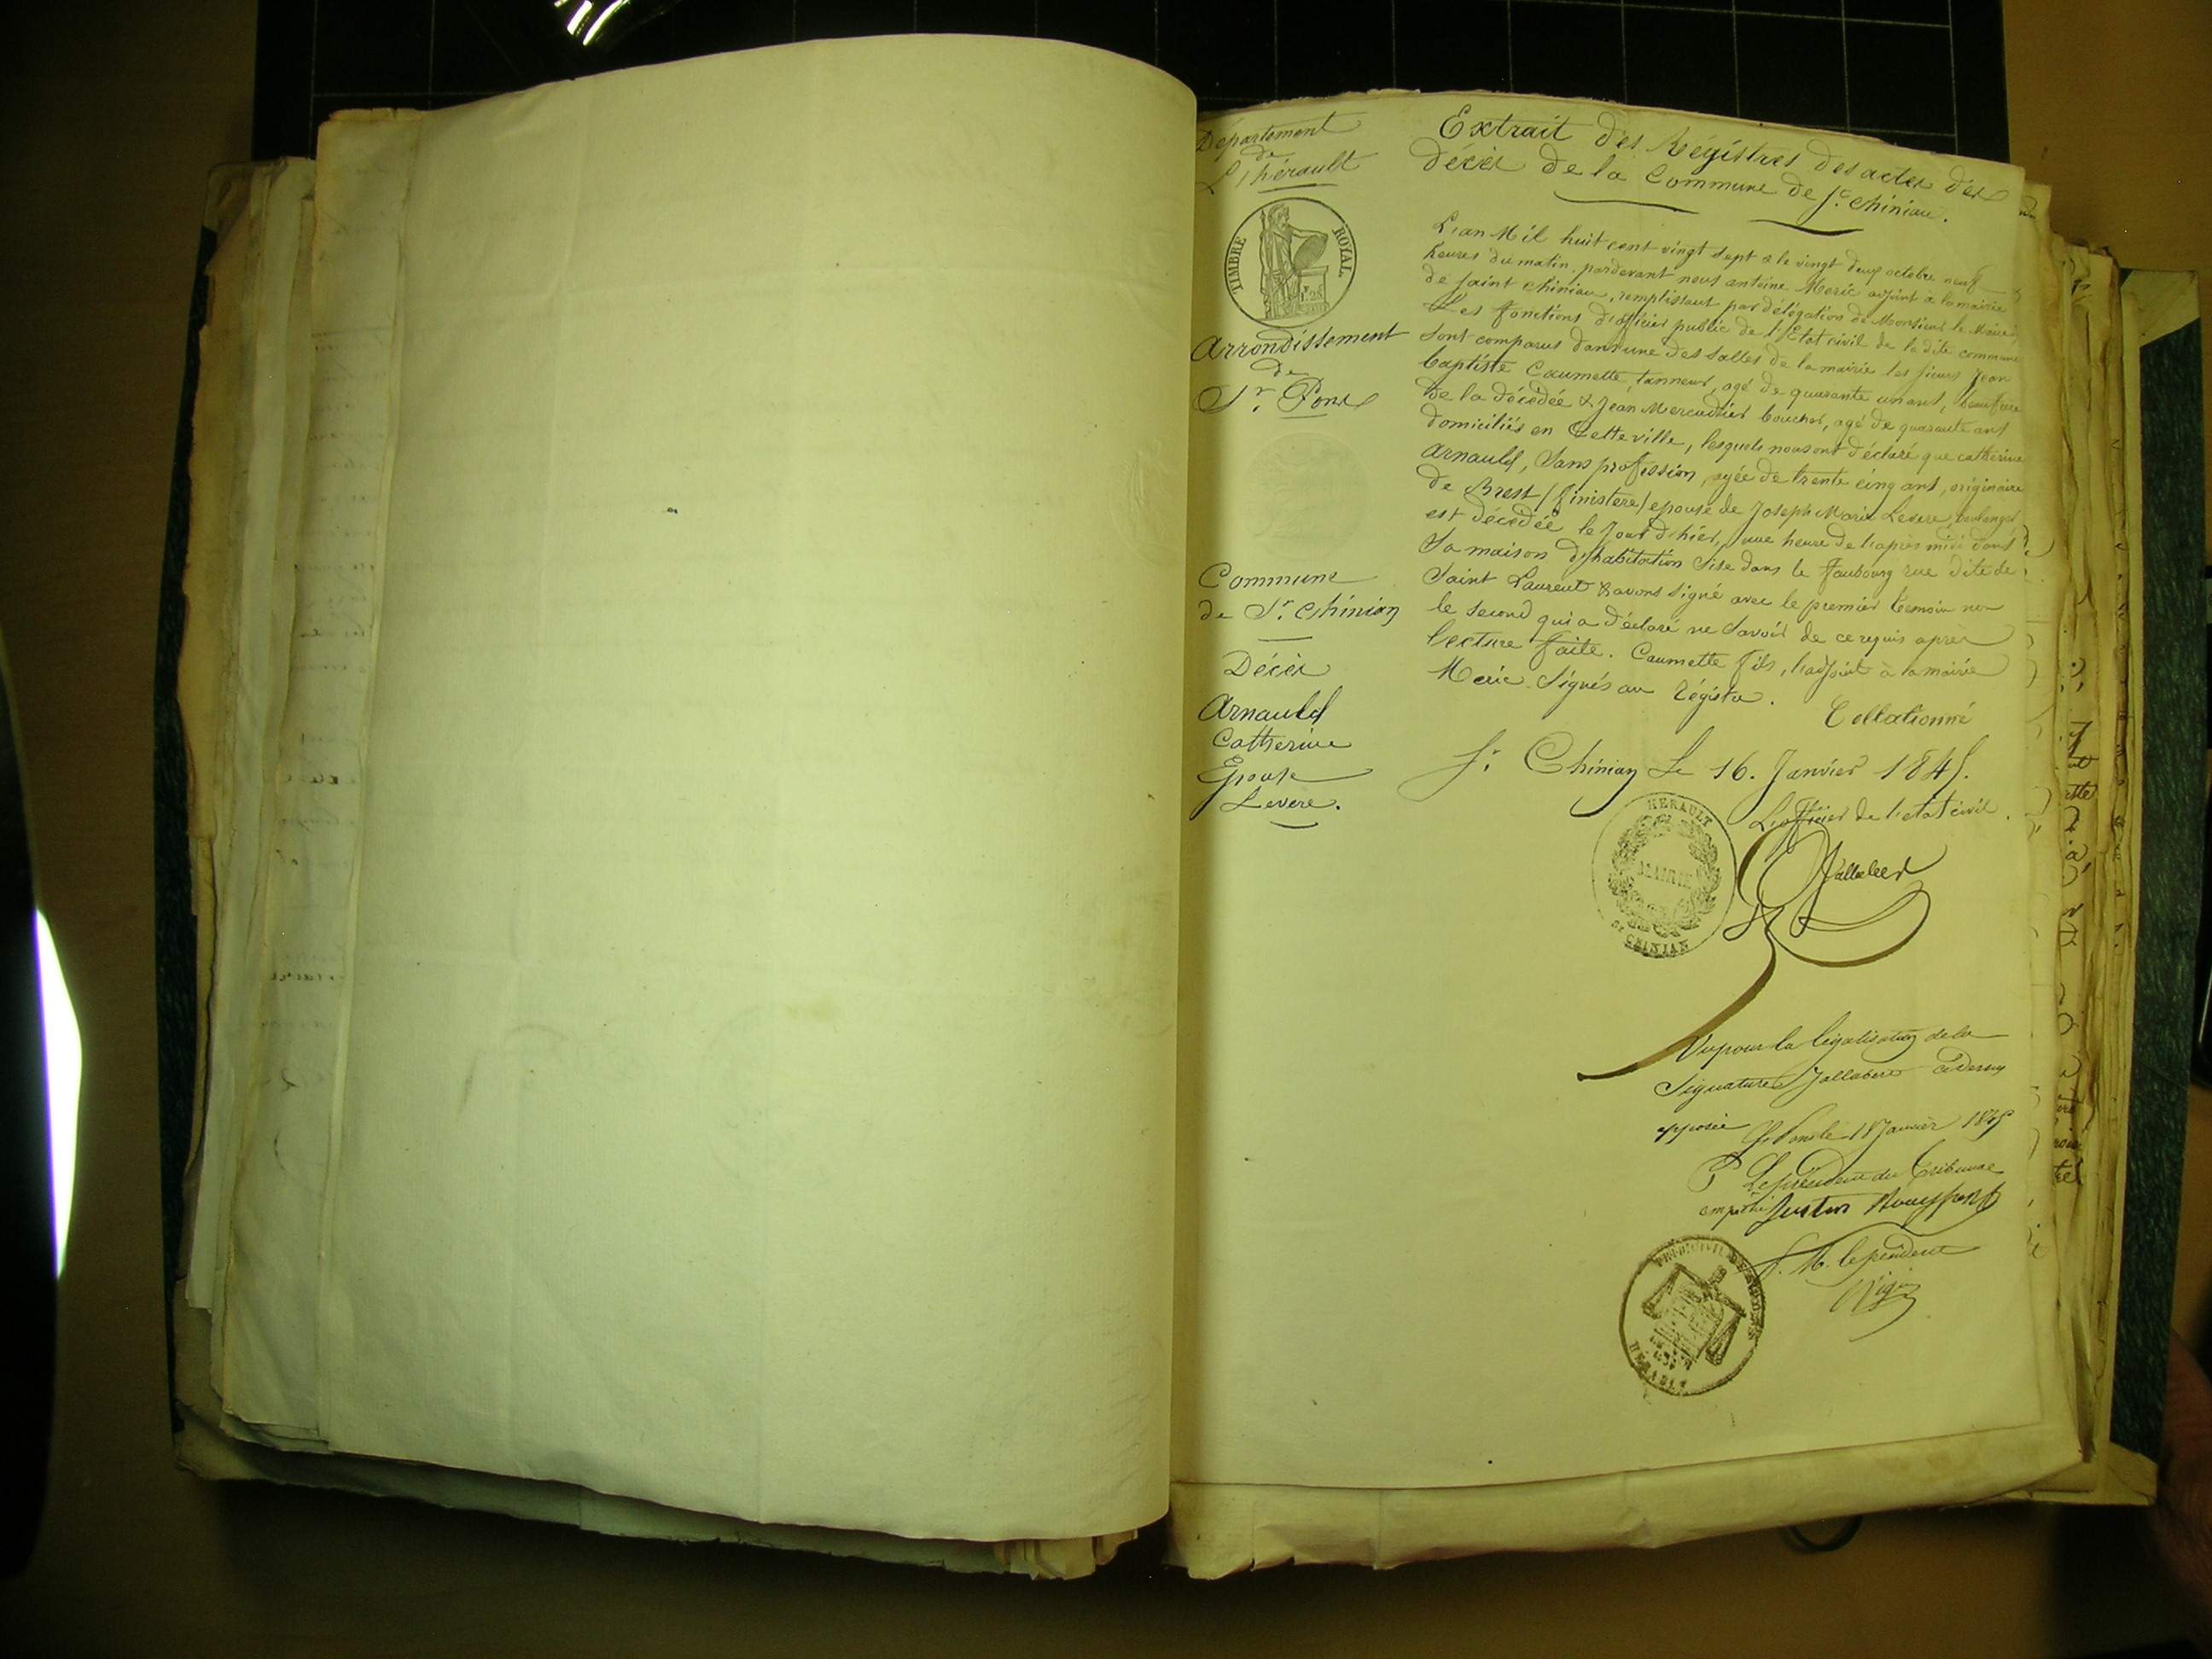 Département
de
L'hérault
TIMBRE ROYAL
1.25
Arrondissement
de
St. Pons
Commune
de St. Chinian
Décès
Arnauld
Catherine
Epouse
Levere.
Extrait des Régistres des actes des
décès de la Commune de St. Chinian.
L'an Mil huit cent vingt sept & le vingt deux octobre neuf
heures du matin, pardevant nous antoine Meric adjoint à la mairie
de saint chinian, remplissant par délégation de Monsieur le Maire,
Les fonctions d'officier public de l'Etat civil de la dite commune
Sont comparus dans une des salles de la mairie les sieurs Jean
baptiste Caumette, tanneur, agé de quarante un ans, beaufrère
de la décédée & Jean Mercadier boucher, agé de quarante ans
domiciliés en Cette ville, lesquels nous ont déclaré que catherine
Arnauld, Sans profession, agée de trente cinq ans, originaire
de Brest (finistere) epouse de Joseph Marie Levere, boulanger
est décédée le jour d'hier, une heure de l'après midi dans
Sa maison d'habitation Sise dans le faubourg rue dite de
Saint Laurent & avons signé avec le premier temoin non
le second qui a déclaré ne savoir de ce requis après
lecture faite. Caumette fils, l'adjoint à la mairie
Meric Signés au régistre.
Collationné
St. Chinian Le 16. Janvier 1845.
L'officier de l'etat civil.
HERAULT
MAIRIE
ST CHINIAN
Jallabert
Vu pour la légalisation de la
Signature Jallabert cidessus
apposée
St Pons le 18 Janvier 1845
P Le président du Tribunal
empêché Justin
HÉRAULT